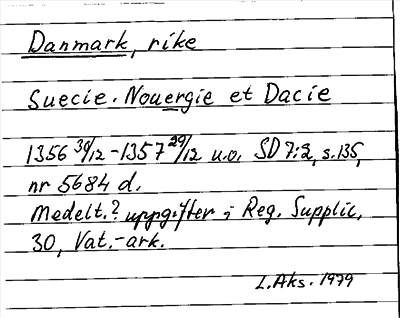 Danmark, rike
Suecie. Nouergie et Dacie
1356 30/12 - 1357 29/12 u.o. SD 7:2, s.135,
nr 5684 d.
Medelt.? uppgifter i Reg. Supplic,
30, Vat.-ark.
L.Aks. 1979